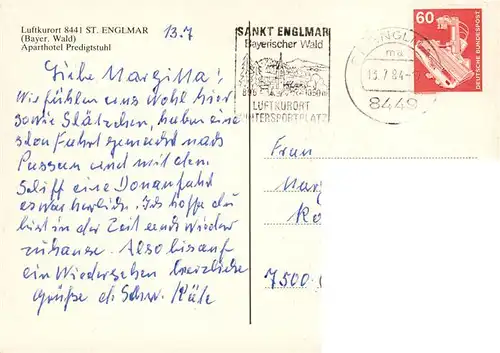 Luftkurort 8441 ST. ENGLMAR
(Bayer. Wald)
Aparthotel Predigtstuhl
13.7
Liebe Margitta!
Wir fühlen uns wohl hier
sowie Slätzchen, haben eine
Fahrt gemacht nach
Passau und mit dem
Schiff eine Donaufahrt
es war herlich. Ich hoffe du
bist in der Zeit auch wieder
zuhause. Also bis auf
ein Wiedersehen herzliche
Grüße d. Schw. Käte
SANKT ENGLMAR
Bayerischer Wald
LUFTKURORT
WINTERSPORTPLATZ
13.7.84
8449
60
DEUTSCHE BUNDESPOST
Frau
Marg
7500